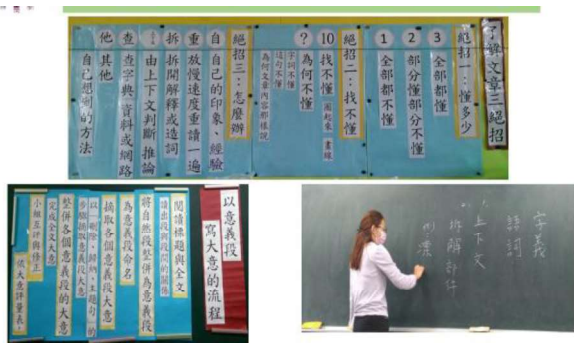 了解文章三絕招
絕招一：懂多少
3 全部都懂
2 部分懂部分不懂
1 全部都不懂
絕招二：找不懂
10 找不懂 圈起來、畫線
? 為何不懂
字詞不懂
這句不懂
為何文章內容那樣說
絕招三：怎麼辦
自 自己的印象、經驗
重 放慢速度重讀一遍
拆 拆開解釋或造詞
由上下文判斷、推論
查 查字典、資料或網路
他 其他
自己想到的方法
以意義段
寫大意的流程
閱讀標題與全文
讀出段與段間的關係
將自然段整併為意義段
為意義段命名
摘取各個意義段大意
以「刪除、歸納、主題句」的
步驟摘取意義段大意
整併各個意義段的大意
完成全文大意
小組互評與修正
依大意評量表
字義
語詞
上下文
拆解部件
例：漂